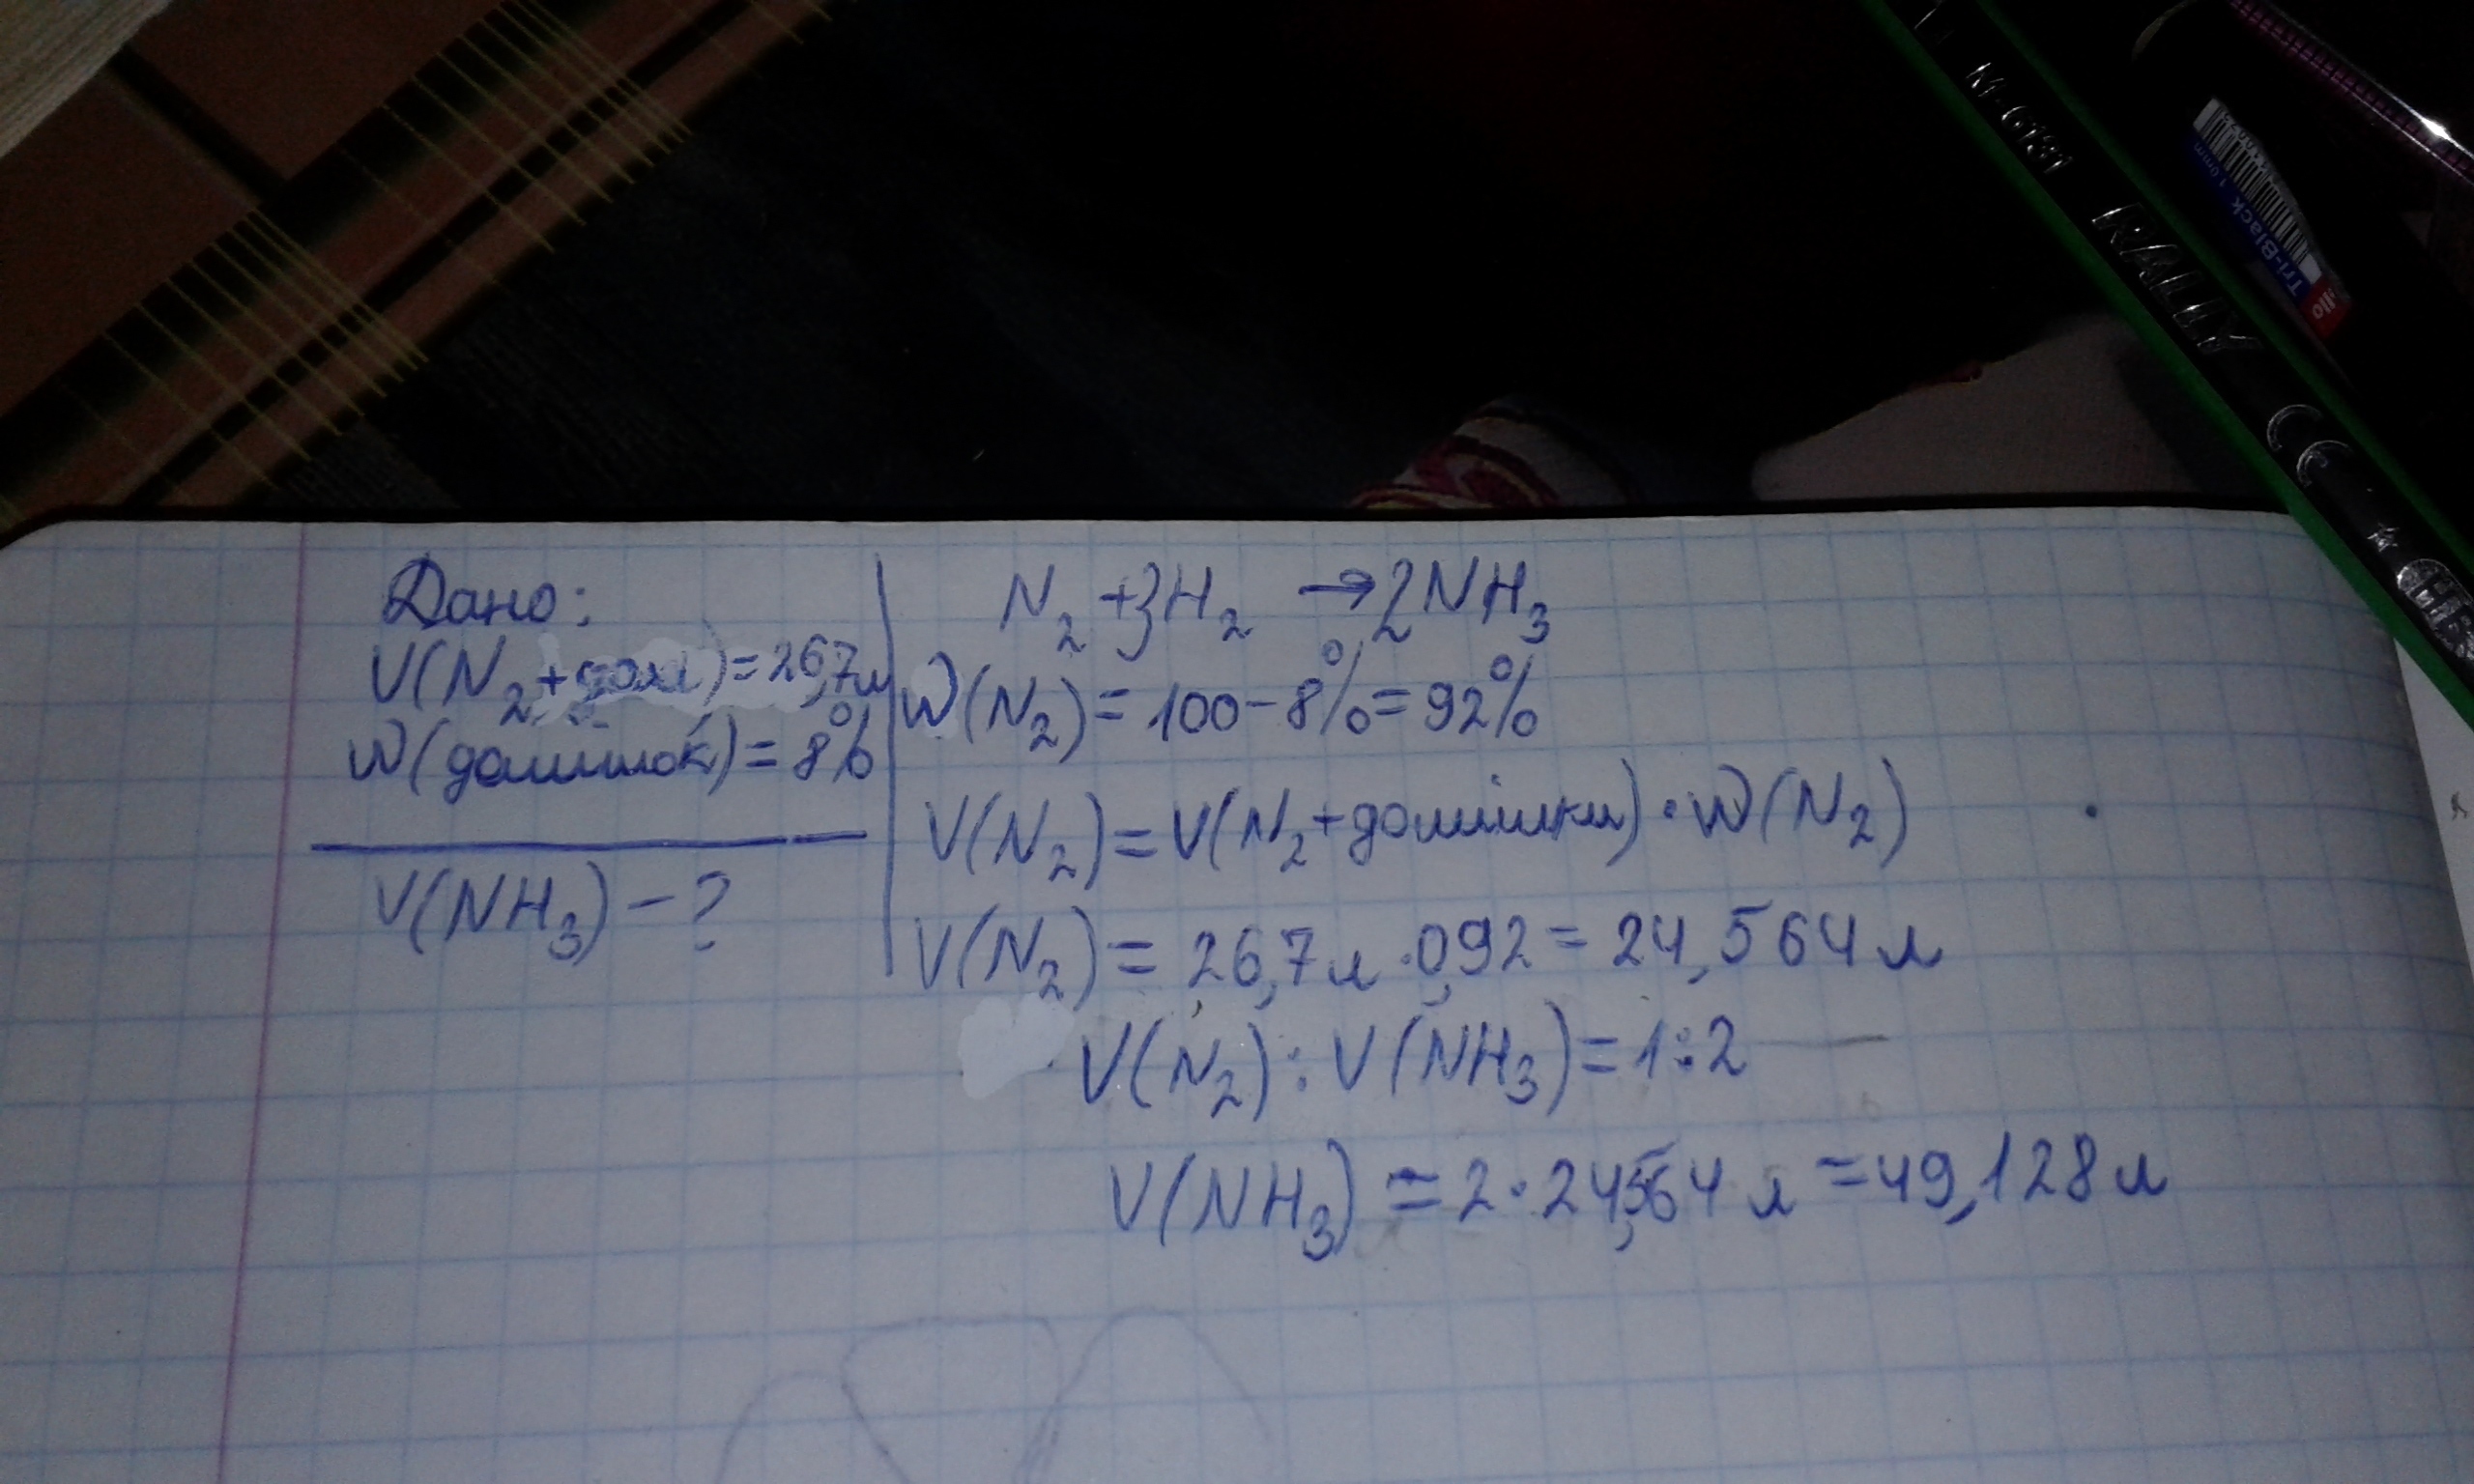 Дано:
V(N₂+дом)=26,7л
W(домішок)=8%
V(NH₃)-?
N₂+3H₂→2NH₃
W(N₂)=100-8%=92%
V(N₂)=V(N₂+домішки)·W(N₂)
V(N₂)=26,7л·0,92=24,564л
V(N₂):V(NH₃)=1:2
V(NH₃)=2·24,564л=49,128л
M-G131 RALLY CE
Tri-Black
1.0mm